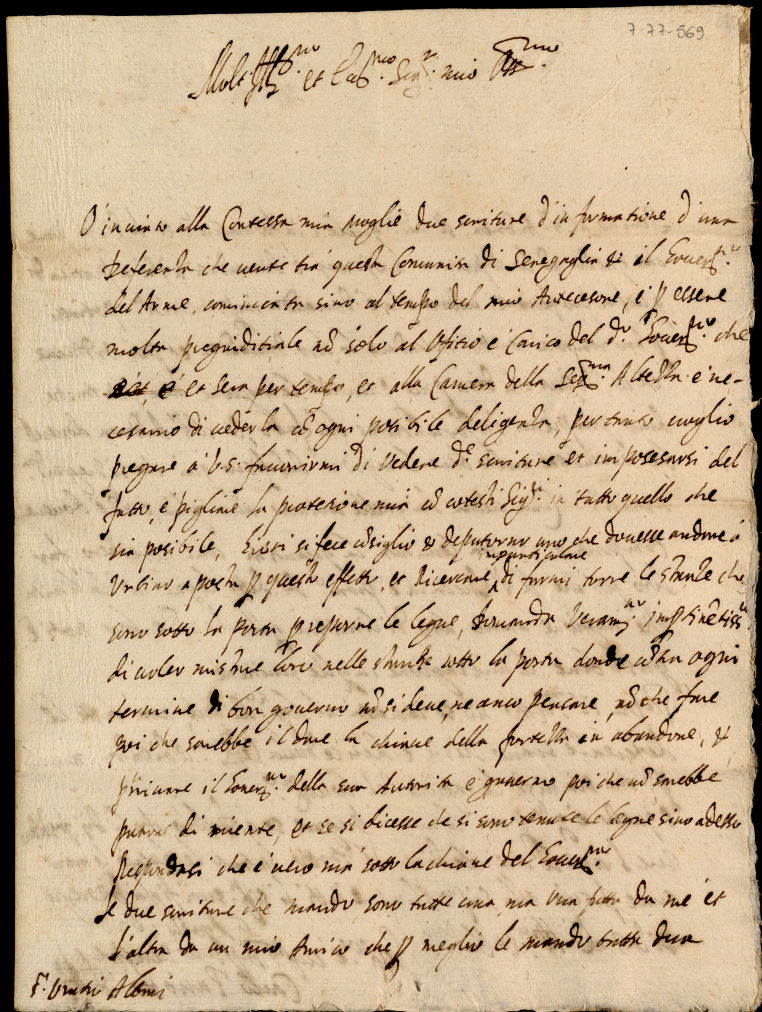 7-77-569
Molt Ill.re et Ecc.mo Sig.r mio Oss.mo
O inviato alla Contessa mia moglie due scriture d'informatione d'una
Deferenza che vente tra questa Comunita di Senegaglia et il Gover.re
del Arme, cominciata sino al tempo del mio Antecesore, e p essere
molto pregiuditiale nō solo al Ofitio e Carico del d.o Gover.re che
e et sera per tempo, et alla Camera della Ser.ma Altezza e ne-
cesario di vederla cō ogni posibile deligenza, pertanto voglio
pregare à V.S. favorirmi di vedere d.e scriture et imposesarsi del
fatto, e pigliare la protetione mia cō cotesti Sig.ri in tutto quello che
sia posibile, si fece cōsiglio et deputorno uno che dovesse andare à
Urbino a posta p questo effetto, et ricercare, in particulare di farmi torre le stanze che
sono sotto la porta p reporne le legne, domanda veram.te
di voler metterne loro nelle stanze sotto la porta donde cō ogni
termine di bon governo nō si deve, ne anco pensare, nō che fare
poi che sarebbe il dare la chiave della fortezza in abandone, et
privare il Gover.re della sua Autorita e governo poi che nō sarebbe
parone di niente, et se si dicesse che si sono tenute le legne sino adesso
Respondasi che è vero mà sotto la chiave del Gover.re
le due scriture che mando sono tutte una, ma una fatta da me et
l'altra da un mio Amico che p meglio le mando tutte dua
Albani